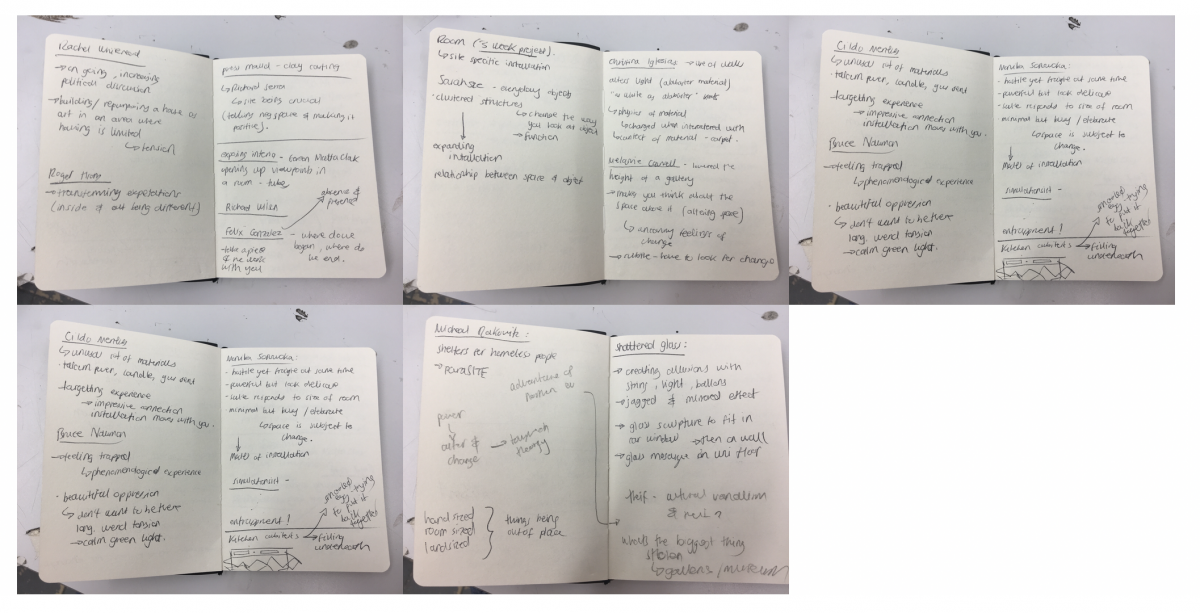 Rachel
→ on going, increasing
political discussion
→ buildings / repurposing a house as
art in an area where
housing is limited
↳ tension
Roger Hiorns
→ transforming expectations
(inside & out being different)
press mould - clay casting
↳ Richard Serra
↳ site being crucial
(taking neg space & making it
positive).
exposing interio - Matta Clark
opening up viewpoints in
a room - tube
absence &
presence
Richard Wilson
Felix Gonzalez - where do we
began, where do
we end.
- take a piece
of the work
with you
Room (5 week project).
↳ site specific installation
Sarah sze - everyday objects
· clustered structures
↳ change the way
you look at object
→ function
expanding
installation
relationship between space & object
Christina Iglesias → use of wall
allows light (alabaster material)
"as white as alabaster"
↳ physics of material
↳ changed when interacted with
↳ context of material - carpet.
Melanie Counsell - lowered the
height of a gallery
→ makes you think about the
space above it (altering space)
↳ unnerving feelings of
change
→ rubble - have to look for change
Cildo
↳ unusual set of materials
· talcum power, candle, gas vent
forgetting experience
→ impressive connection
installation moves with you.
Bruce Nauman
→ feeling trapped
↳ phenomenological experience
· beautiful oppression
↳ don't want to be there
long. weird tension
→ calm green light.
- hostile yet fragile at same time
- powerful but look delicate
- responds to size of room
- minimal but busy / elaborate
↳ space is subject to
change.
↓
model of installation
simulationist -
anticipment !
smashed
egg - trying
to put it
back
together
Kitchen cabinets → filling
underneath
Cildo
↳ unusual set of materials
· talcum power, candle, gas vent
forgetting experience
→ impressive connection
installation moves with you.
Bruce Nauman
→ feeling trapped
↳ phenomenological experience
· beautiful oppression
↳ don't want to be there
long. weird tension
→ calm green light.
- hostile yet fragile at same time
- powerful but look delicate
- responds to size of room
- minimal but busy / elaborate
↳ space is subject to
change.
↓
model of installation
simulationist -
anticipment !
smashed
egg - trying
to put it
back
together
Kitchen cabinets → filling
underneath
Micheal Rakowitz :
shelters for homeless people
→ paraSITE
advantage of
power
↓
alter &
change
→
therapy
hand sized
room sized
landsized
things being
out of place
shattered glass :
→ creating illusions with
string, light, ballons
→ jagged & mirrored effect
→ glass sculpture to fit in
car window → then on wall
→ glass on uni floor
thief - cultural vandalism
&
whats the biggest thing
stolen
↳ gallery / museum